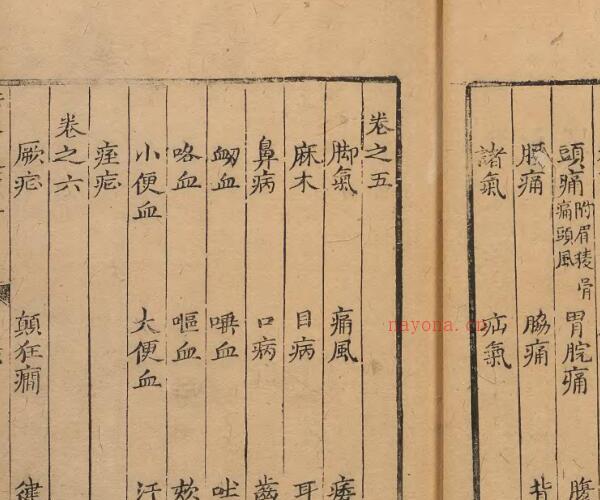 頭痛 附眉稜骨痛頭風 胃脘痛 腹
痛 脇痛
諸氣 疝氣
卷之五
脚氣 痛風 痿
麻木 目病 耳
鼻病 口病 齒
衂血 唾血 吐
咯血 嘔血 欬
小便血 大便血 汗
痓
卷之六
厥 顛狂癇
nayona.cn